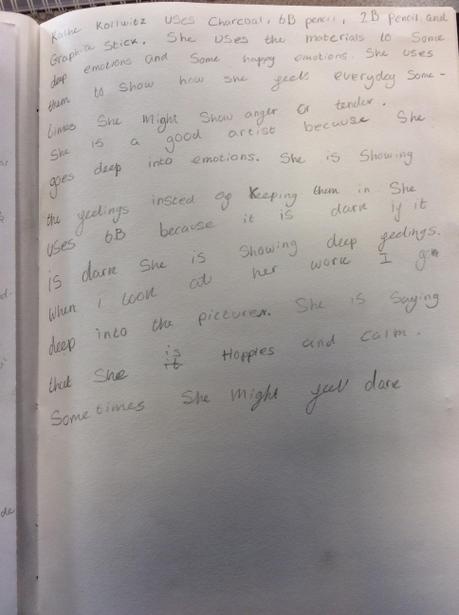 Kathe Kollwitz uses Charcoal, 6B pencil, 2B Pencil and
Graphite Stick. She uses the materials to Some
deep emotions and Some happy emotions. She uses
them to show how she feels everyday Some-
times She Might Show anger or tender.
She is a good artist because She
goes deep into emotions. She is Showing
the feelings insted of Keeping them in She
uses 6B because it is dark if it
is dark She is Showing deep feelings.
When i look at her work I go
deep into the pictures. She is Saying
that She is Happies and Calm.
Sometimes She Might feel dark